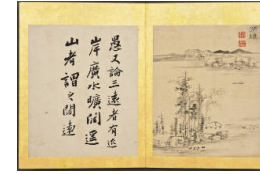 愚又論三遠者有近
岸廣水曠闊遙
山者謂之闊遠